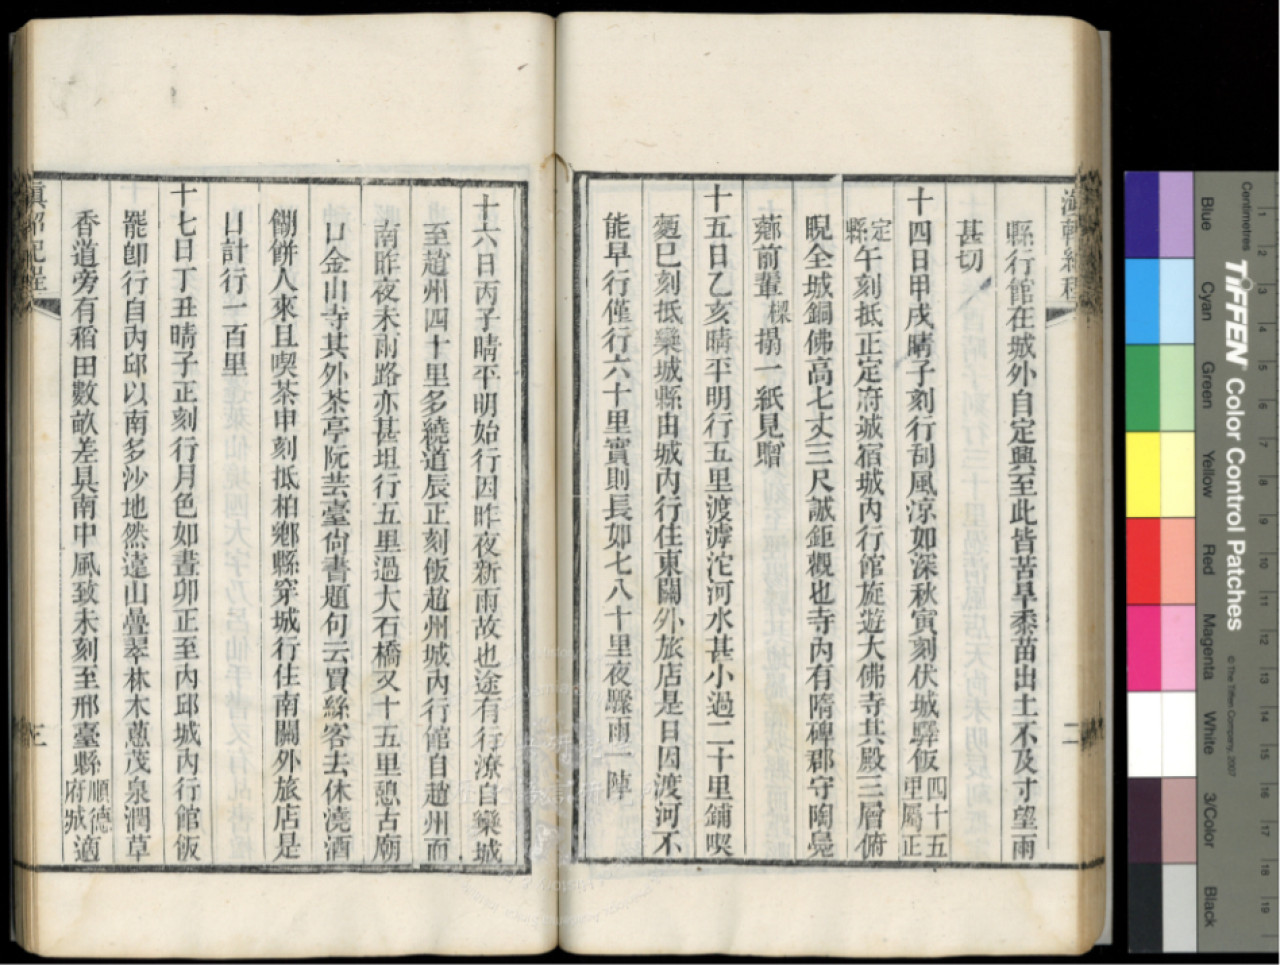 縣行館在城外自定興至此皆苦旱黍苗出土不及寸望雨
甚切
十四日甲戌晴子刻行刮風涼如深秋寅刻伏城驛飯四十五里屬正
定縣午刻抵正定府誠宿城內行館旋遊大佛寺其殿三層俯
睨全城銅佛高七丈三尺誠鉅觀也寺內有隋碑郡守陶鳧
薌前輩樑搨一紙見贈
十五日乙亥晴平明行五里渡滹沱河水甚小過二十里鋪喫
麪巳刻抵欒城縣由城內行住東關外旅店是日因渡河不
能早行僅行六十里實則長如七八十里夜驟雨一陣
十六日丙子晴平明始行因昨夜新雨故也途有行潦自欒城
至趙州四十里多繞道辰正刻飯趙州城內行館自趙州而
南昨夜未雨路亦甚坦行五里過大石橋又十五里憩古廟
曰金山寺其外茶亭阮芸臺尚書題句云買絲客去休澆酒
餬餅人來且喫茶申刻抵柏鄉縣穿城行住南關外旅店是
日計行一百里
十七日丁丑晴子正刻行月色如晝卯正至內邱城內行館飯
罷卽行自內邱以南多沙地然遠山疊翠林木蔥茂泉澗草
香道旁有稻田數畝差具南中風致未刻至邢臺縣順德府城適
滇軺紀程
Centimetres
TIFFEN Color Control Patches
© The Tiffen Company, 2007
Blue
Cyan
Green
Yellow
Red
Magenta
White
3/Color
Black
1
2
3
4
5
6
7
8
9
10
11
12
13
14
15
16
17
18
19